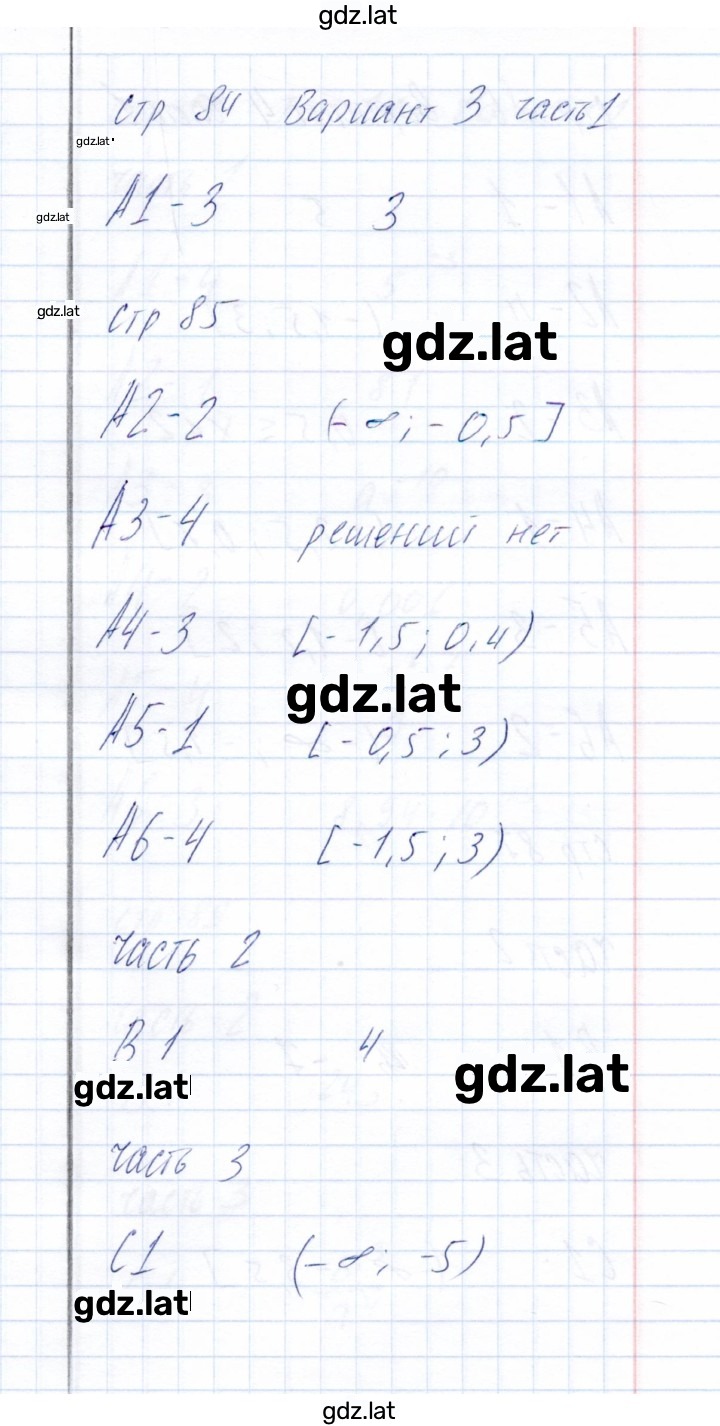 gdz.lat
стр 84 Вариант 3 часть 1
gdz.lat
А1-3 3
gdz.lat
gdz.lat
стр 85
gdz.lat
А2-2 (-∞; -0,5]
А3-4 решений нет
А4-3 [-1,5; 0,4)
gdz.lat
А5-1 [-0,5; 3)
А6-4 [-1,5; 3)
часть 2
В 1 4
gdz.lat
gdz.lat
часть 3
С1 (-∞; -5)
gdz.lat
gdz.lat